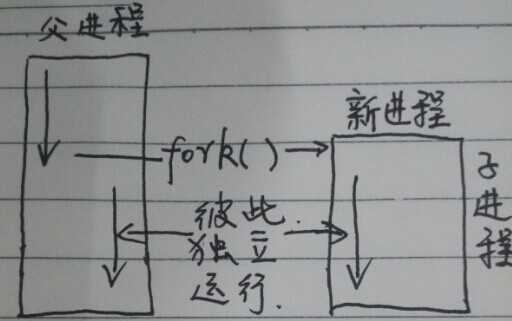 父进程
新进程
fork()
子进程
彼此.
独立
运行.